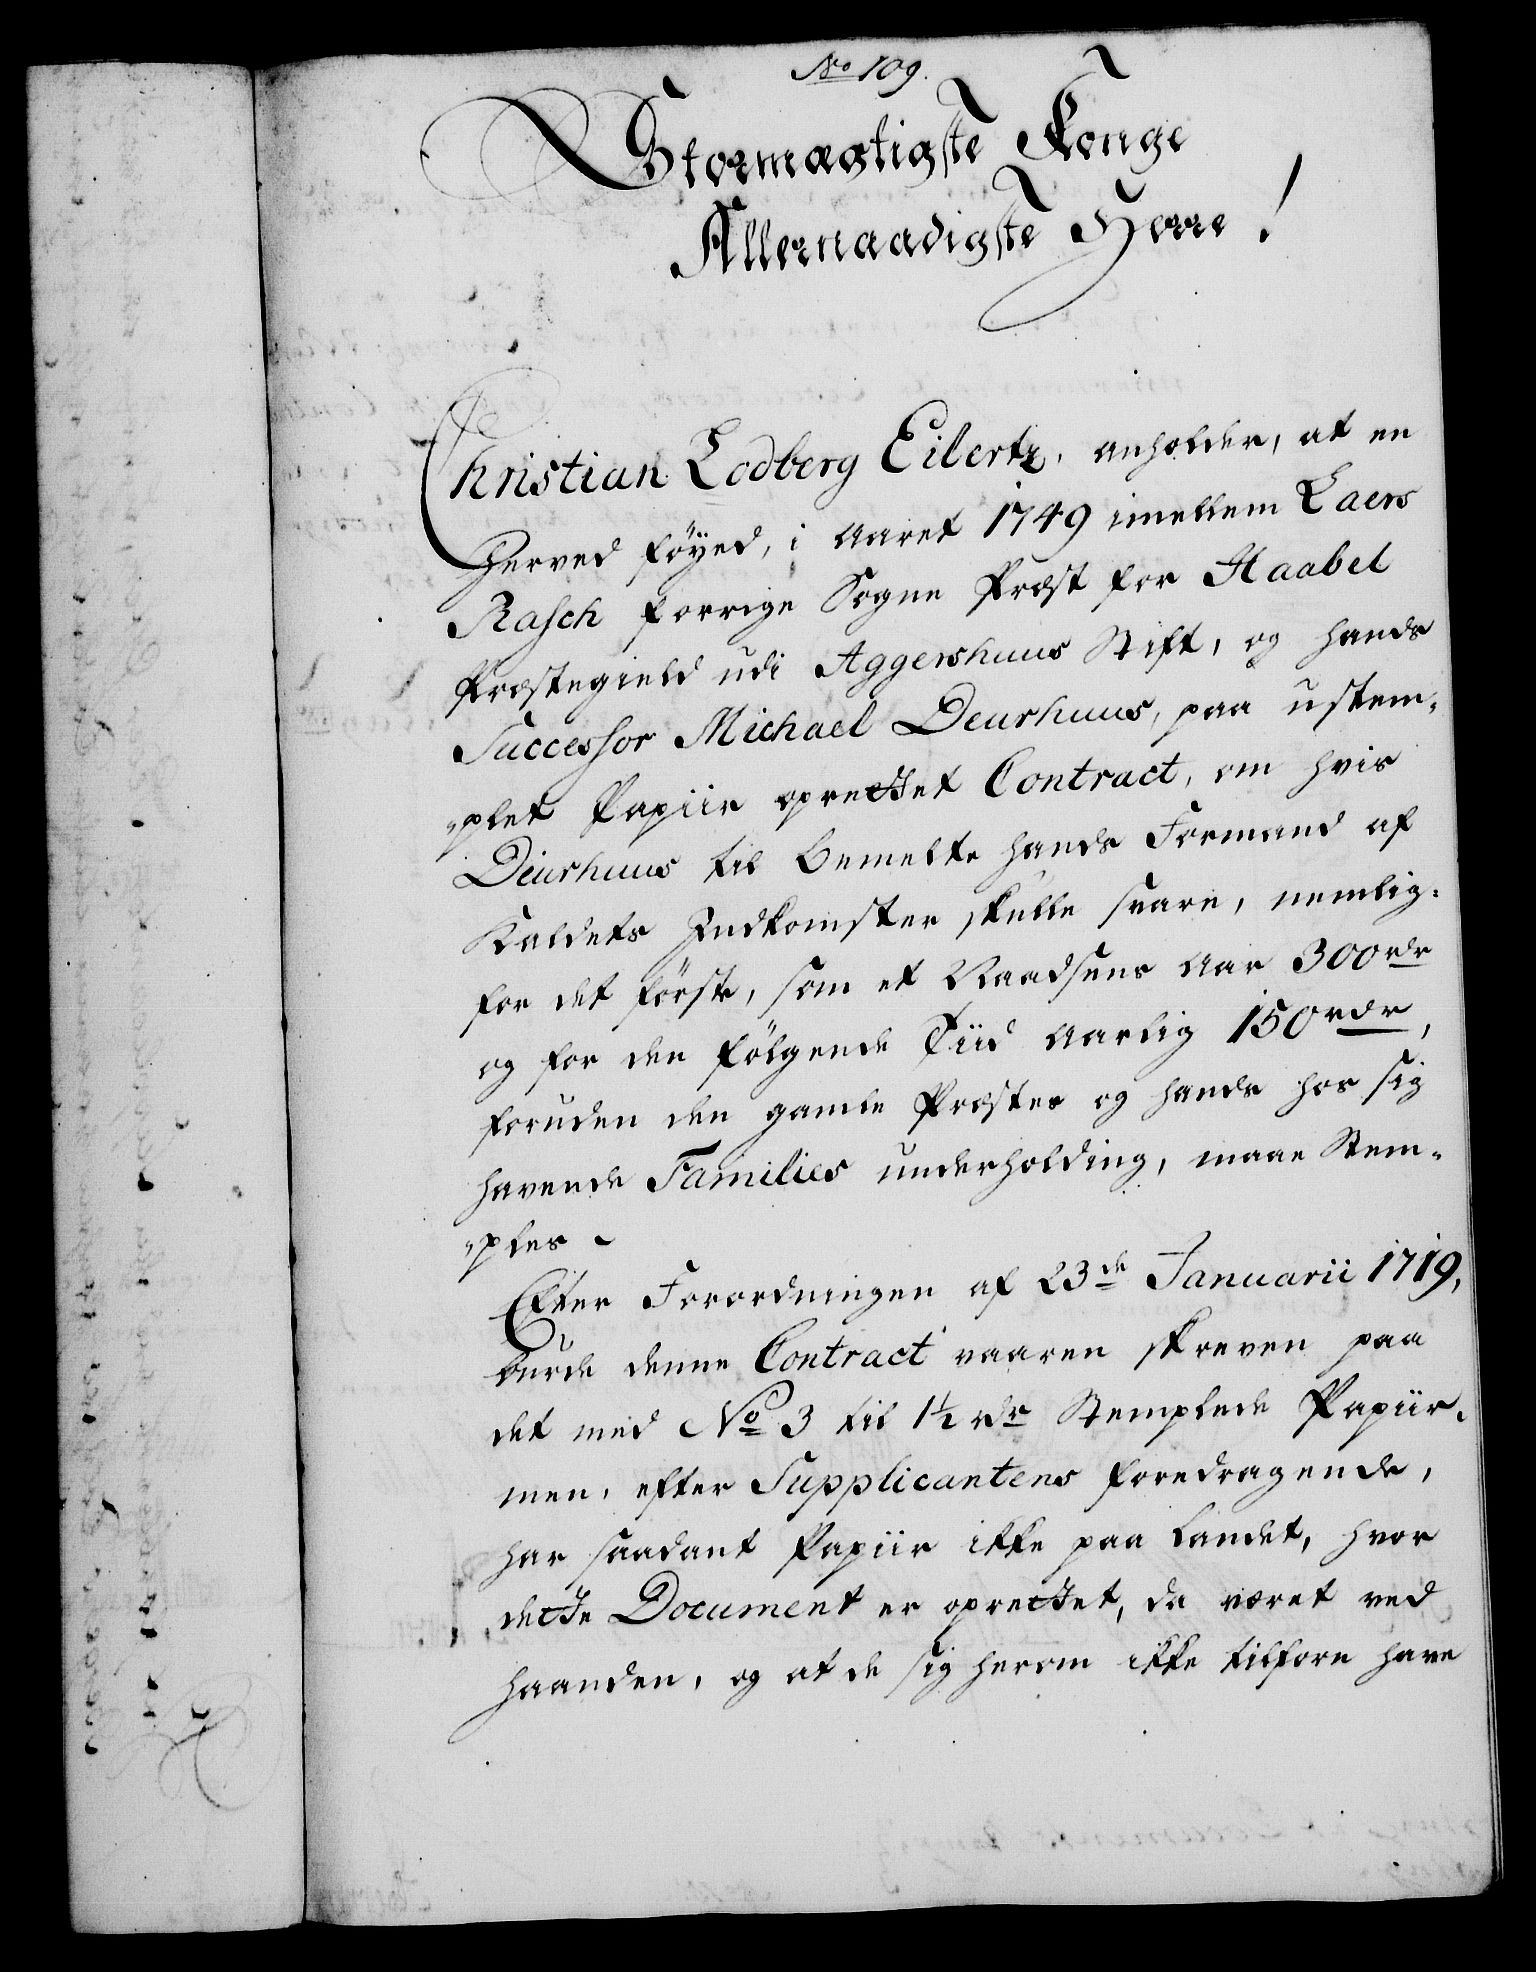 No 109.
Stormægtigste Konge
Allernaadigste Herre!
Christian Lodberg Eilertz, anholder, at en
herved føyed, i Aaret 1749 imellem Laers
Rasch forrige Sogne Præst for Haabel
Præstegield udi Aggershuus Stift, og hands
Successor Michael Deurhuus, paa ustem-
plet Papiir oprettet Contract, om hvis
Deurhuus til bemelte hands Formand af
Kaldets Indkomster skulle svare, nemlig:
for det første, som et Naadsens Aar 300 rdr
og for den følgende Tiid aarlig 150 rdr,
foruden den gamle Præstes og hands hos sig
havende Families underholding, maae Stem-
ples.
Efter Forordningen af 23de Januarii 1719,
burde denne Contract vaaren skreven paa
det med No 3 til 1½ rdr Stemplede Papiir.
men, efter Supplicantens foredragende,
har saadant Papiir ikke paa Landet, hvor
dette Document er oprettet, da været ved
haanden, og at de sig herom ikke tilforn have